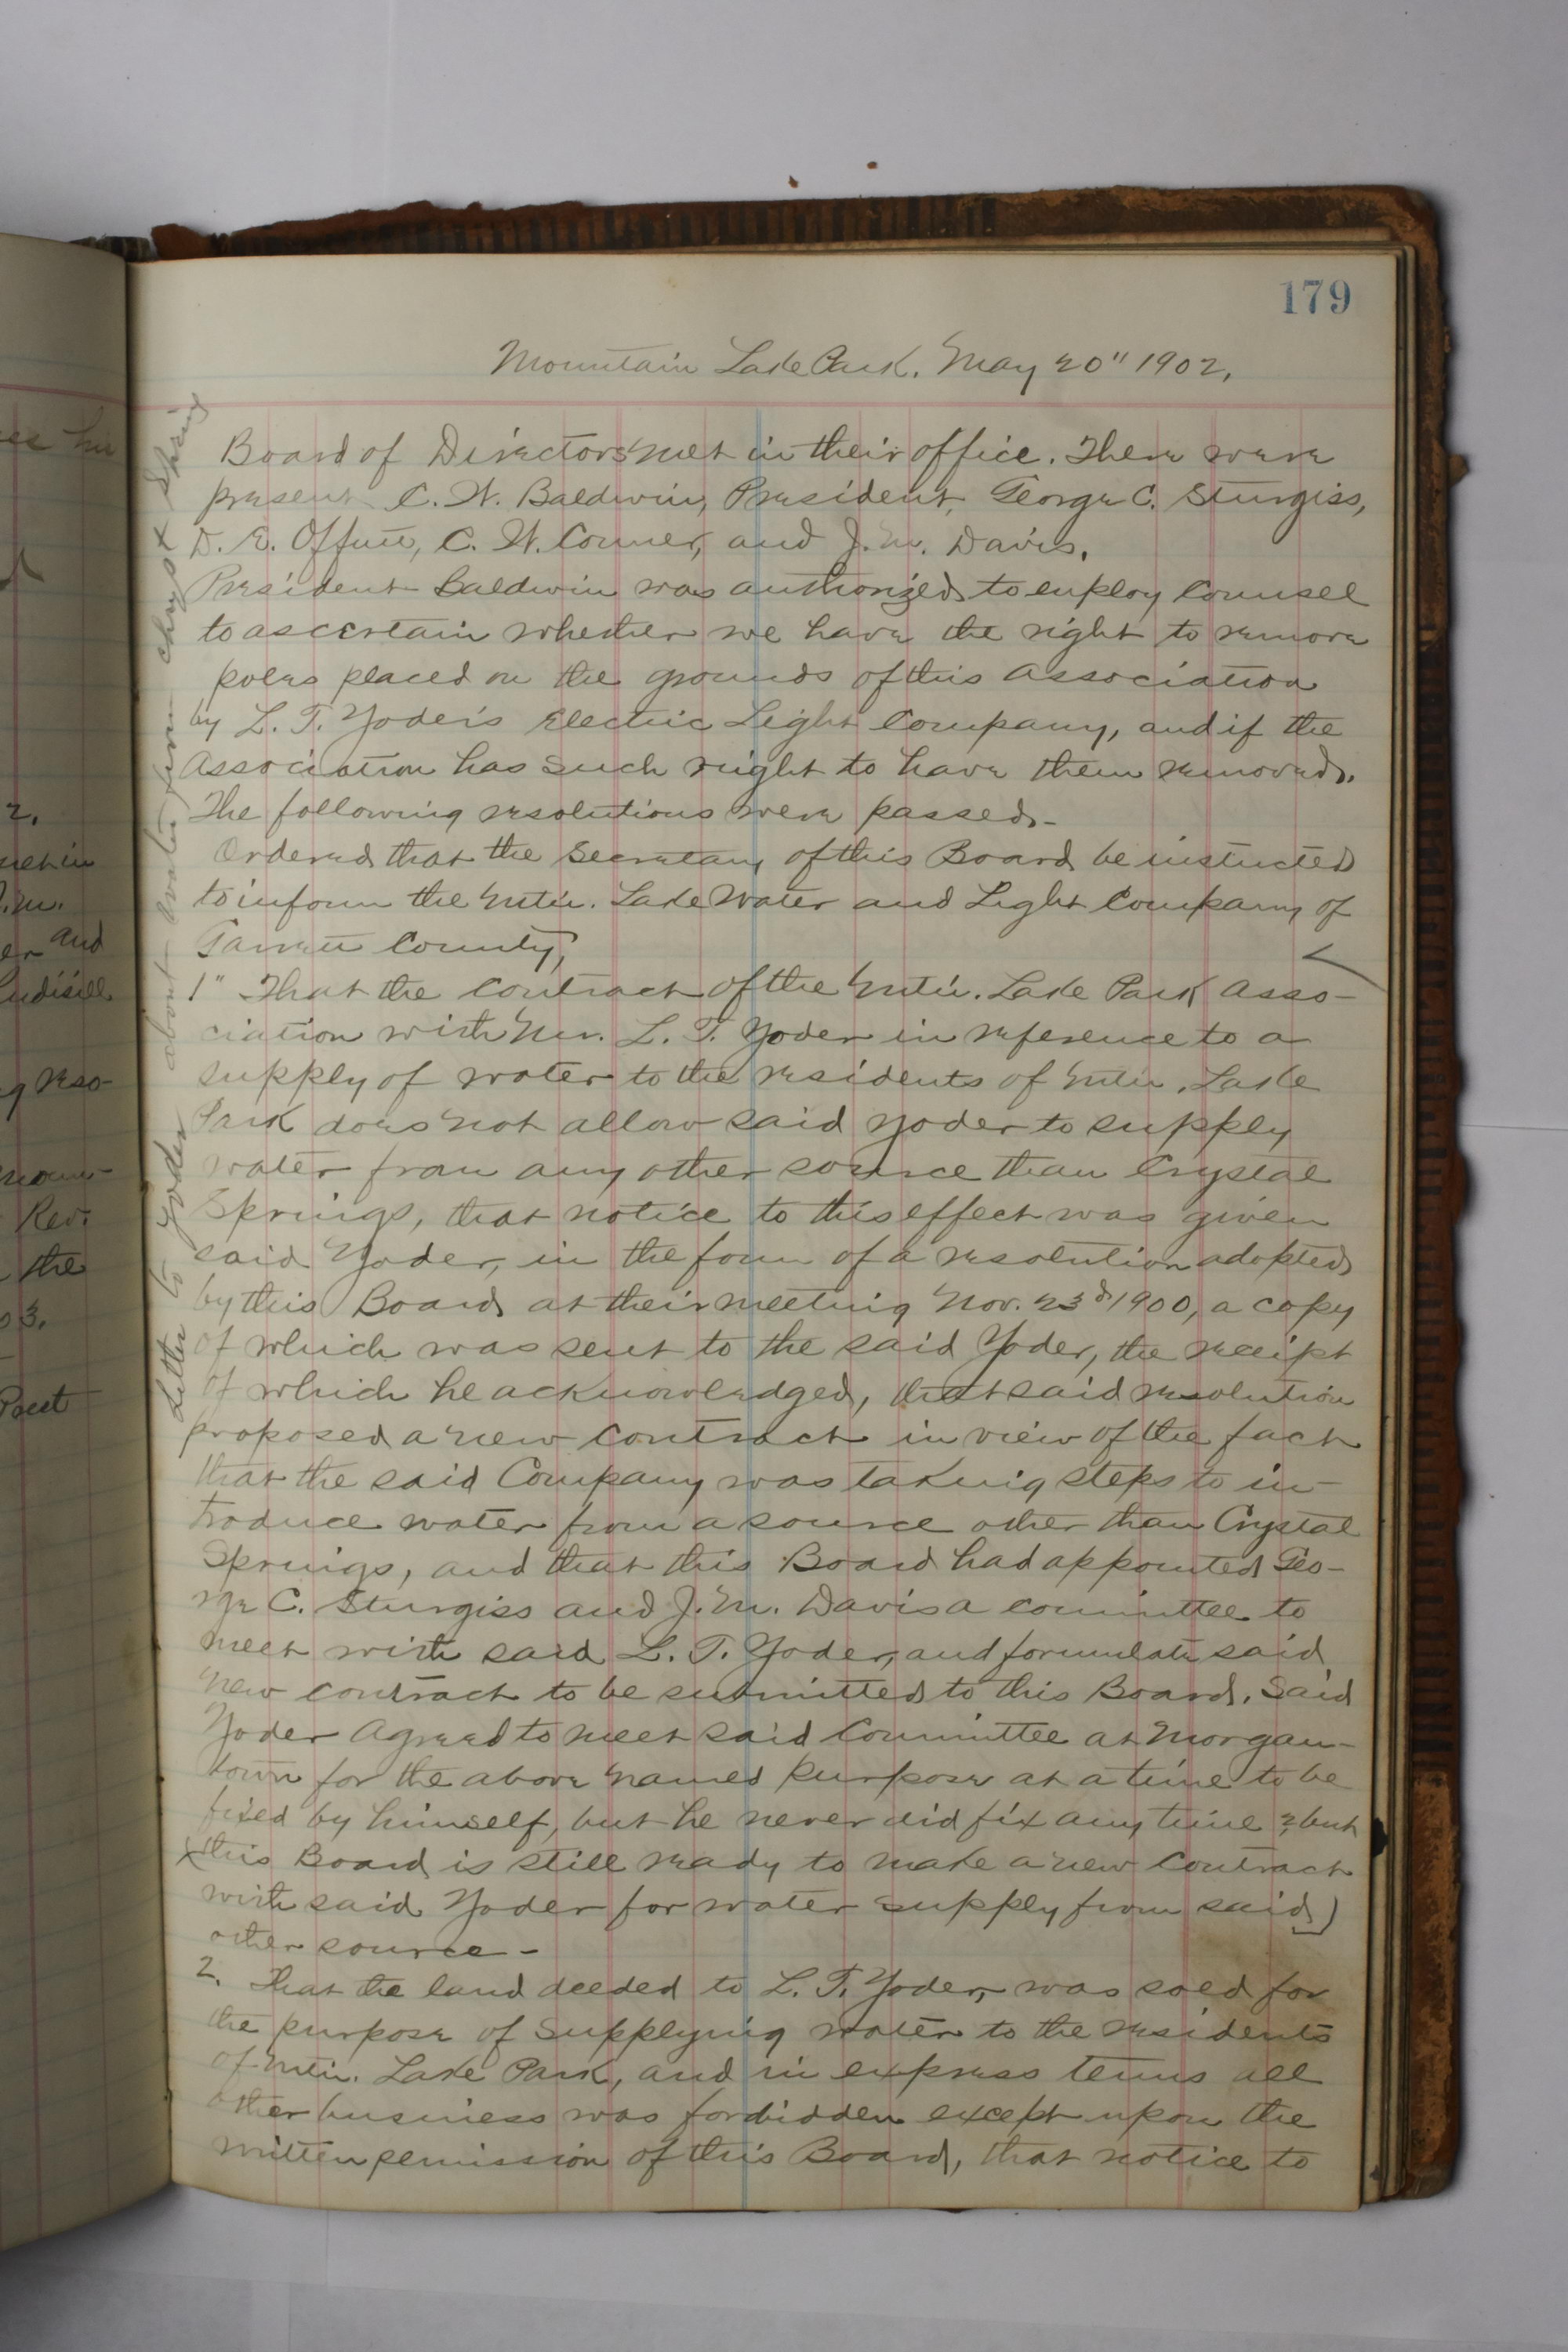 179
Mountain Lake Park. May 20" 1902.
Board of Directors met in their office. There were
present C. W. Baldwin, President, George C. Sturgiss,
D. E. Offutt, C. W. Conner, and J. M. Davis.
President Baldwin was authorized to employ Counsel
to ascertain whether we have the right to remove
poles placed on the grounds of this Association
by L. T. Yoder's Electric Light Company, and if the
Association has such right to have them removed.
The following resolutions were passed-
Ordered that the Secretary of this Board be instucted
to inform the Mtn. Lake Water and Light Company of
Garrett County,
1" That the Contract of the Mtn. Lake Park Asso-
ciation with Mr. L. T. Yoder in reference to a
supply of water to the residents of Mtn. Lake
Park does not allow said Yoder to supply
water from any other source than Crystal
Springs, that notice to this effect was given
said Yoder, in the form of a resolution adopted
by this Board at their meeting Nov. 23d 1900, a copy
of which was sent to the said Yoder, the receipt
of which he acknowledged, that said resolution
proposed a new Contract in view of the fact
that the said Company was taking steps to in-
troduce water from a source other than Crystal
Springs, and that this Board had appointed Geo-
rge C. Sturgiss and J. M. Davis a committee to
meet with said L. T. Yoder, and formulate said
new contract to be submitted to this Board. Said
Yoder agreed to meet said Committee at Morgan-
town for the above named purpose at a time to be
fixed by himself, but he never did fix any time & but
x this Board is still ready to make a new Contract
with said Yoder for water supply from said
other source-
2. That the land deeded to L. T. Yoder, was sold for
the purpose of supplying water to the residents
of Mtn. Lake Park, and in express terms all
other business was forbidden except upon the
written permission of this Board, that notice to
Letter to Yoder about water from Chryst Spring
2.
and
Rev.
the